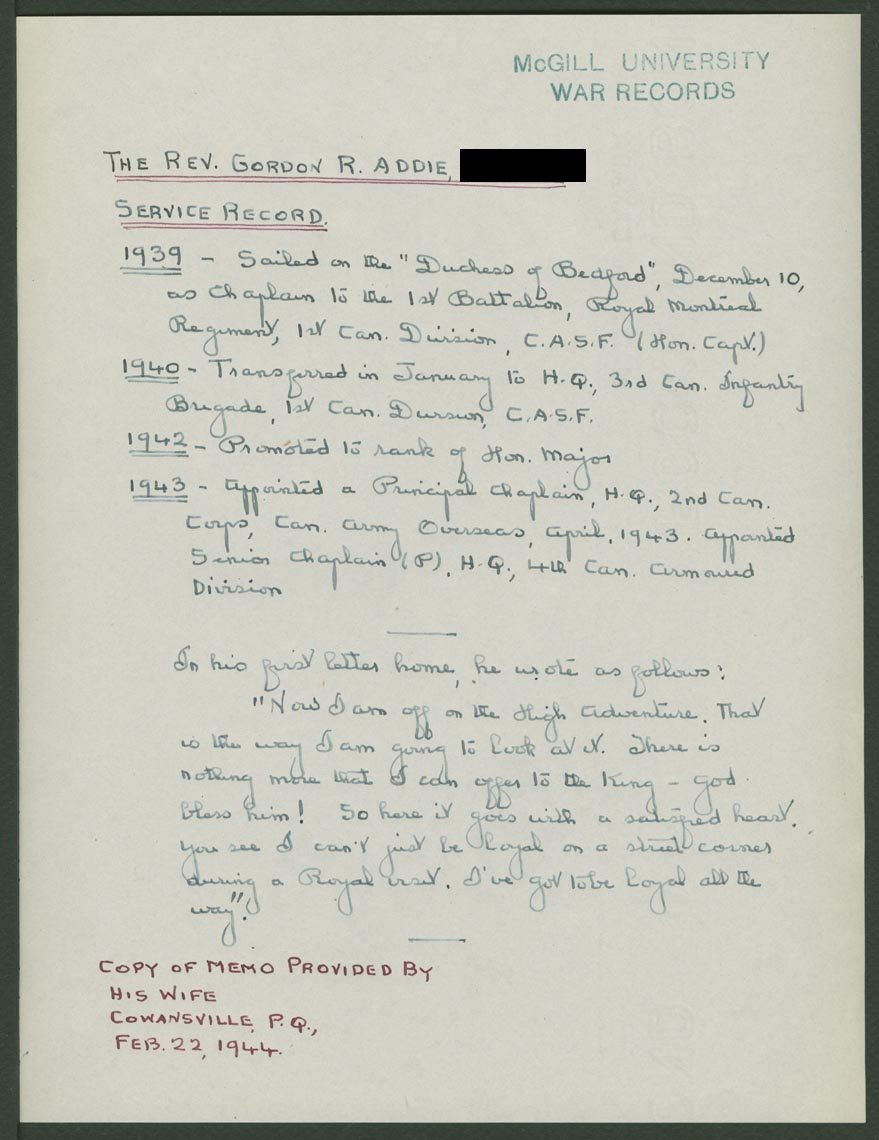 McGILL UNIVERSITY
WAR RECORDS
THE REV. GORDON R. ADDIE,
SERVICE RECORD.
1939 - Sailed on the "Duchess of Bedford", December 10,
as Chaplain to the 1st Battalion, Royal Montreal
Regiment, 1st Can. Division, C.A.S.F. (Hon. Capt.)
1940 - Transferred in January to H.Q., 3rd Can. Infantry
Brigade, 1st Can. Division, C.A.S.F.
1942 - Promoted to rank of Hon. Major
1943 - Appointed a Principal Chaplain, H.Q., 2nd Can.
Corps, Can. Army Overseas, April, 1943. Appointed
Senior Chaplain (P), H.Q., 4th Can. Armoured
Division
In his first letter home, he wrote as follows:
"Now I am off on the High Adventure. That
is the way I am going to look at it. There is
nothing more that I can offer to the King - God
bless him! So here it goes with a satisfied heart.
You see I can't just be loyal on a street corner
during a Royal visit. I've got to be loyal all the
way".
COPY OF MEMO PROVIDED BY
HIS WIFE
COWANSVILLE, P.Q.,
FEB. 22, 1944.